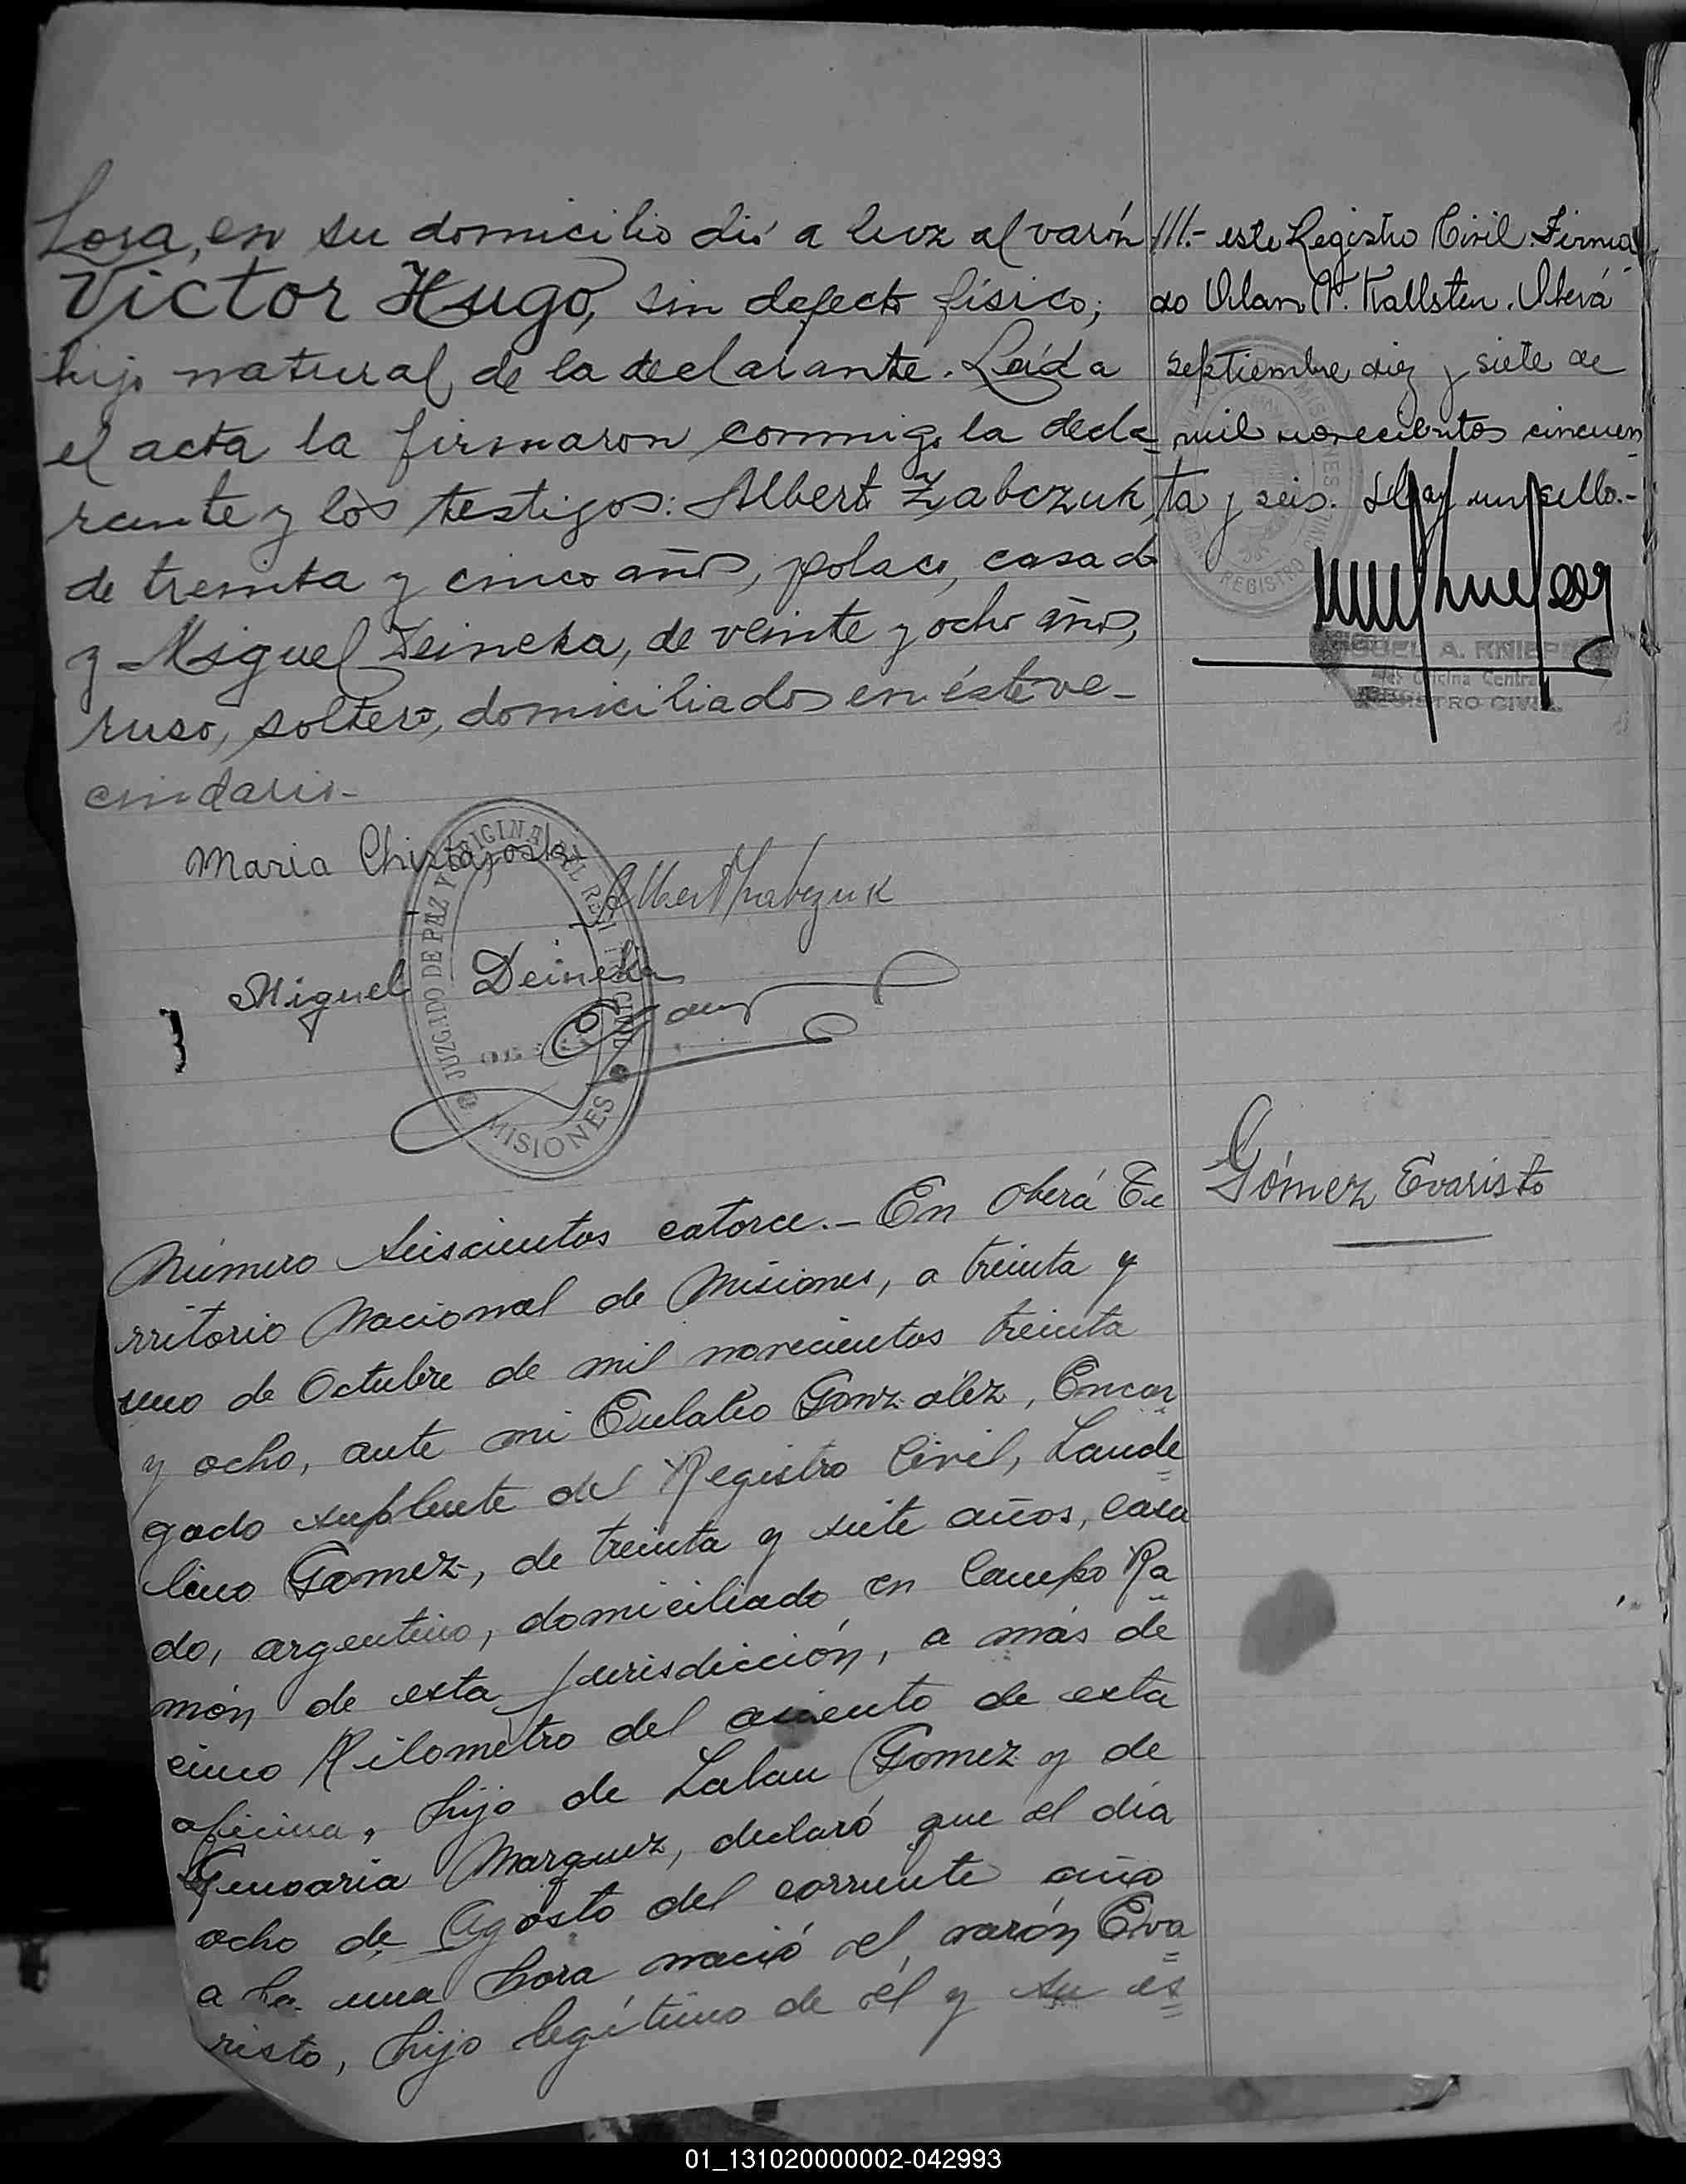 Losa, en su domicilio dió a luz al varón
Victor Hugo, sin defecto físico;
hijo natural de la declarante. Leída
el acta la firmaron conmigo la decla=
rante y los testigos: Alberto Zabczuk,
de treinta y cinco años, polaco, casado
y Miguel Deineka, de veinte y ocho años,
ruso, soltero, domiciliados en éste ve-
cindario.-
///.- este Registro Civil. Firma
do N. Kallsten. Oberá
septiembre diez y siete de
mil novecientos cincuen
ta y seis. Hay un sello.-
REGISTRO
MISIONES
MIGUEL A. KNIEPP
Oficina Central
REGISTRO CIVIL
Maria
Miguel Deineka
JUZGADO DE PAZ Y
CIVIL
MISIONES
Gómez Evaristo
Número seiscientos catorce.- En Oberá Te
rritorio Nacional de Misiones, a treinta y
uno de Octubre de mil novecientos treinta
y ocho, ante mi Eulalio González, Encar
gado suplente del Registro Civil, Laude
lino Gomez, de treinta y siete años, casa
do, argentino, domiciliado en Campo Ra
món de esta jurisdicción, a más de
cinco Kilometro del asiento de esta
oficina, hijo de Lalau Gomez y de
Genoaria Marquez, declaró que el día
ocho de Agosto del corriente año
a la una hora nació el varón Eva
risto, hijo legítimo de él y su es
01_131020000002-042993